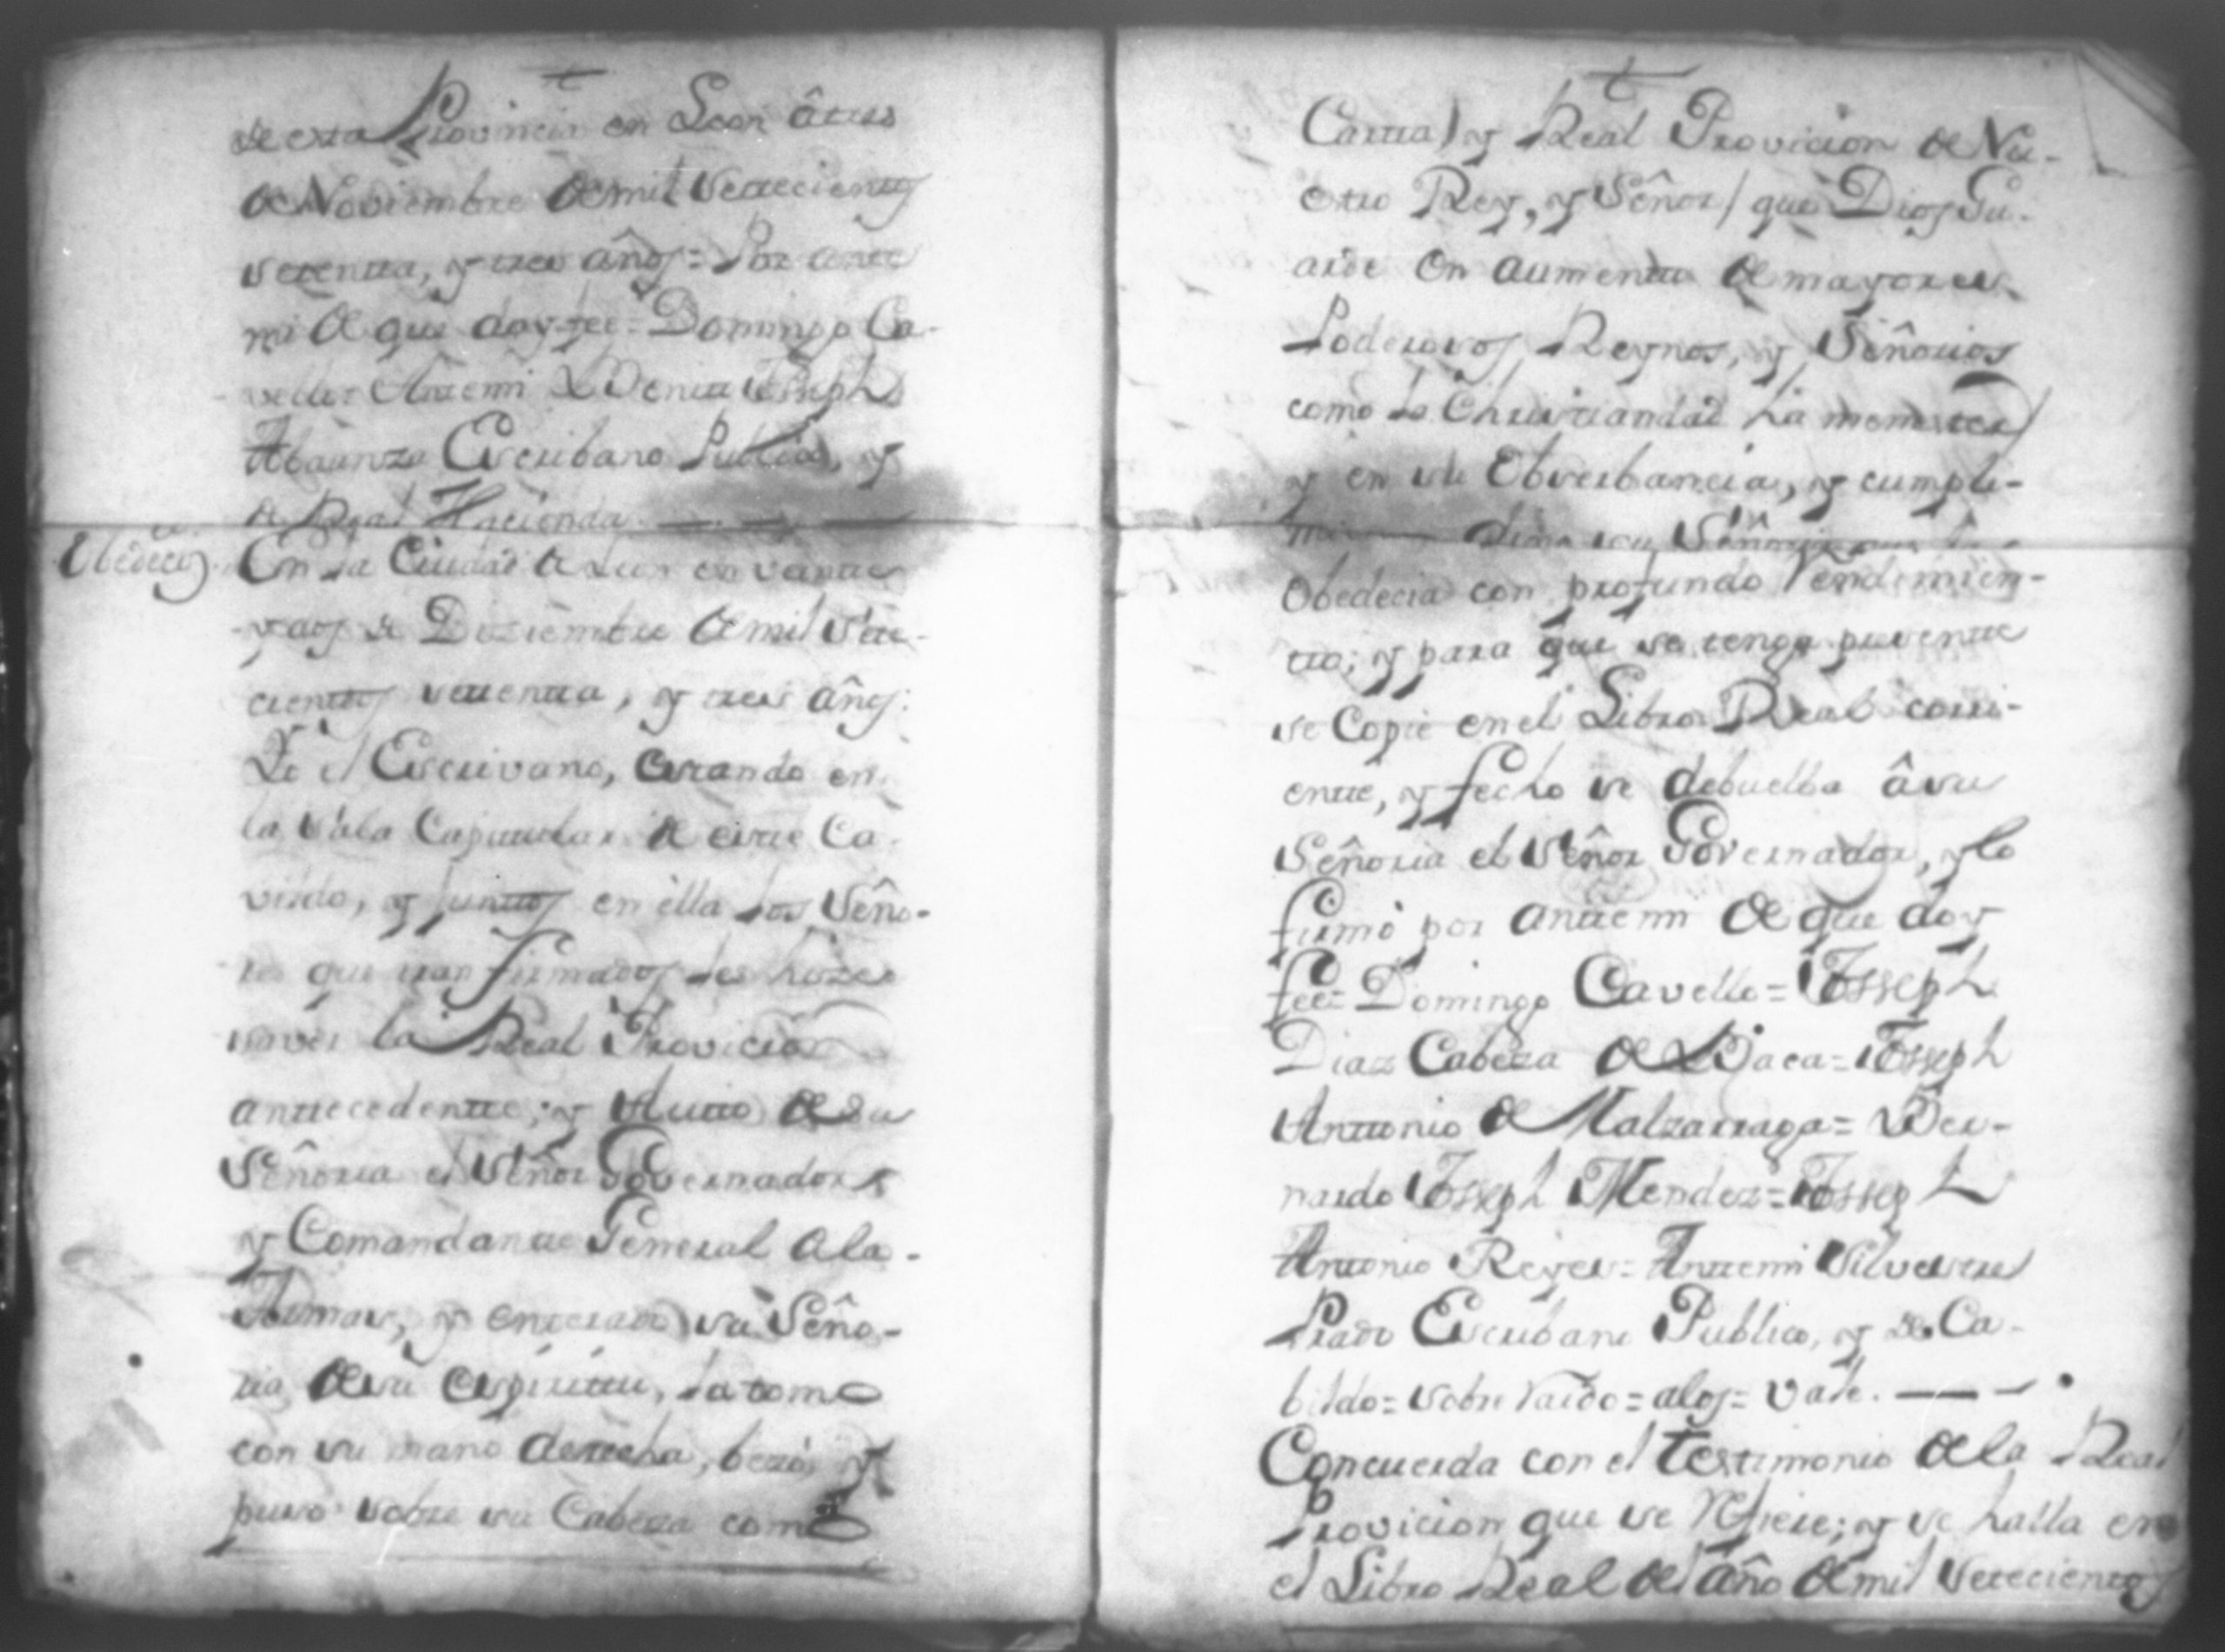 de esta Provincia en Leon â tres
de Noviembre de mil settecientos
setentta, y tres años = Por ante
mi de que doy fee = Domingo Ca-
vello = Antemi Ventta Joseph
Abaunza Escribano Publico, y
de Real Hacienda.
Obedecimº. En la Ciudad de Leon en veintte
y dos de Diziembre de mil sete-
cienttos settentta, y tres años:
Yo el Escrivano, estando en
la Sala Capittular de este Ca-
vildo, y junttos en ella los Seño-
res que iran firmados les hize
saver la Real Provicion
anttecedentte; y visto de Su
Señoria el Señor Governador
y Comandantte General a la
Armas, y enterado su Seño-
ria de su espirittu, la tomo
con su mano derecha, bezó, y
puso sobre su Cabeza como
Cartta) y Real Provicion de Nu-
estro Rey, y Señor / que Dios Gu-
arde en aumentto de mayores
Poderosos Reynos, y Señorios
como la Christiandad ha menester)
y en su Obserbancia, y cumpli-
Obedecia con profundo Rendimien-
tto; y para que se tenga presentte
se Copie en el Libro Real corri-
entte, y fecho se debuelba â su
Señoria el Señor Governador, y lo
firmó por anttemi de que doy
fee = Domingo Cavello = Josseph
Diaz Cabeza de Baca = Josseph
Anttonio de Malzarraga = Ber-
nardo Josseph Mendez = Josseph
Anttonio Reyes = Anttemi Silvestre
Prado Escribano Publico, y de Ca-
bildo = Sobre raido = a los = Vale.
Concuerda con el testimonio de la Real
Provicion que se Refiere; y se halla en
el Libro Real del año de mil setecientos